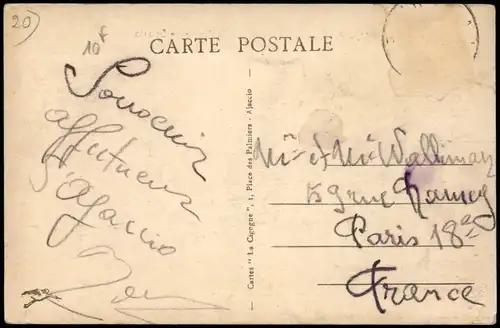 20)
10f
CARTE POSTALE
Souvenir
affectueux
d'Ajaccio
Cartes "La Cigogne", 1, Place des Palmiers - Ajaccio
Mr et Mme
59 rue Ramey
Paris 18e
France